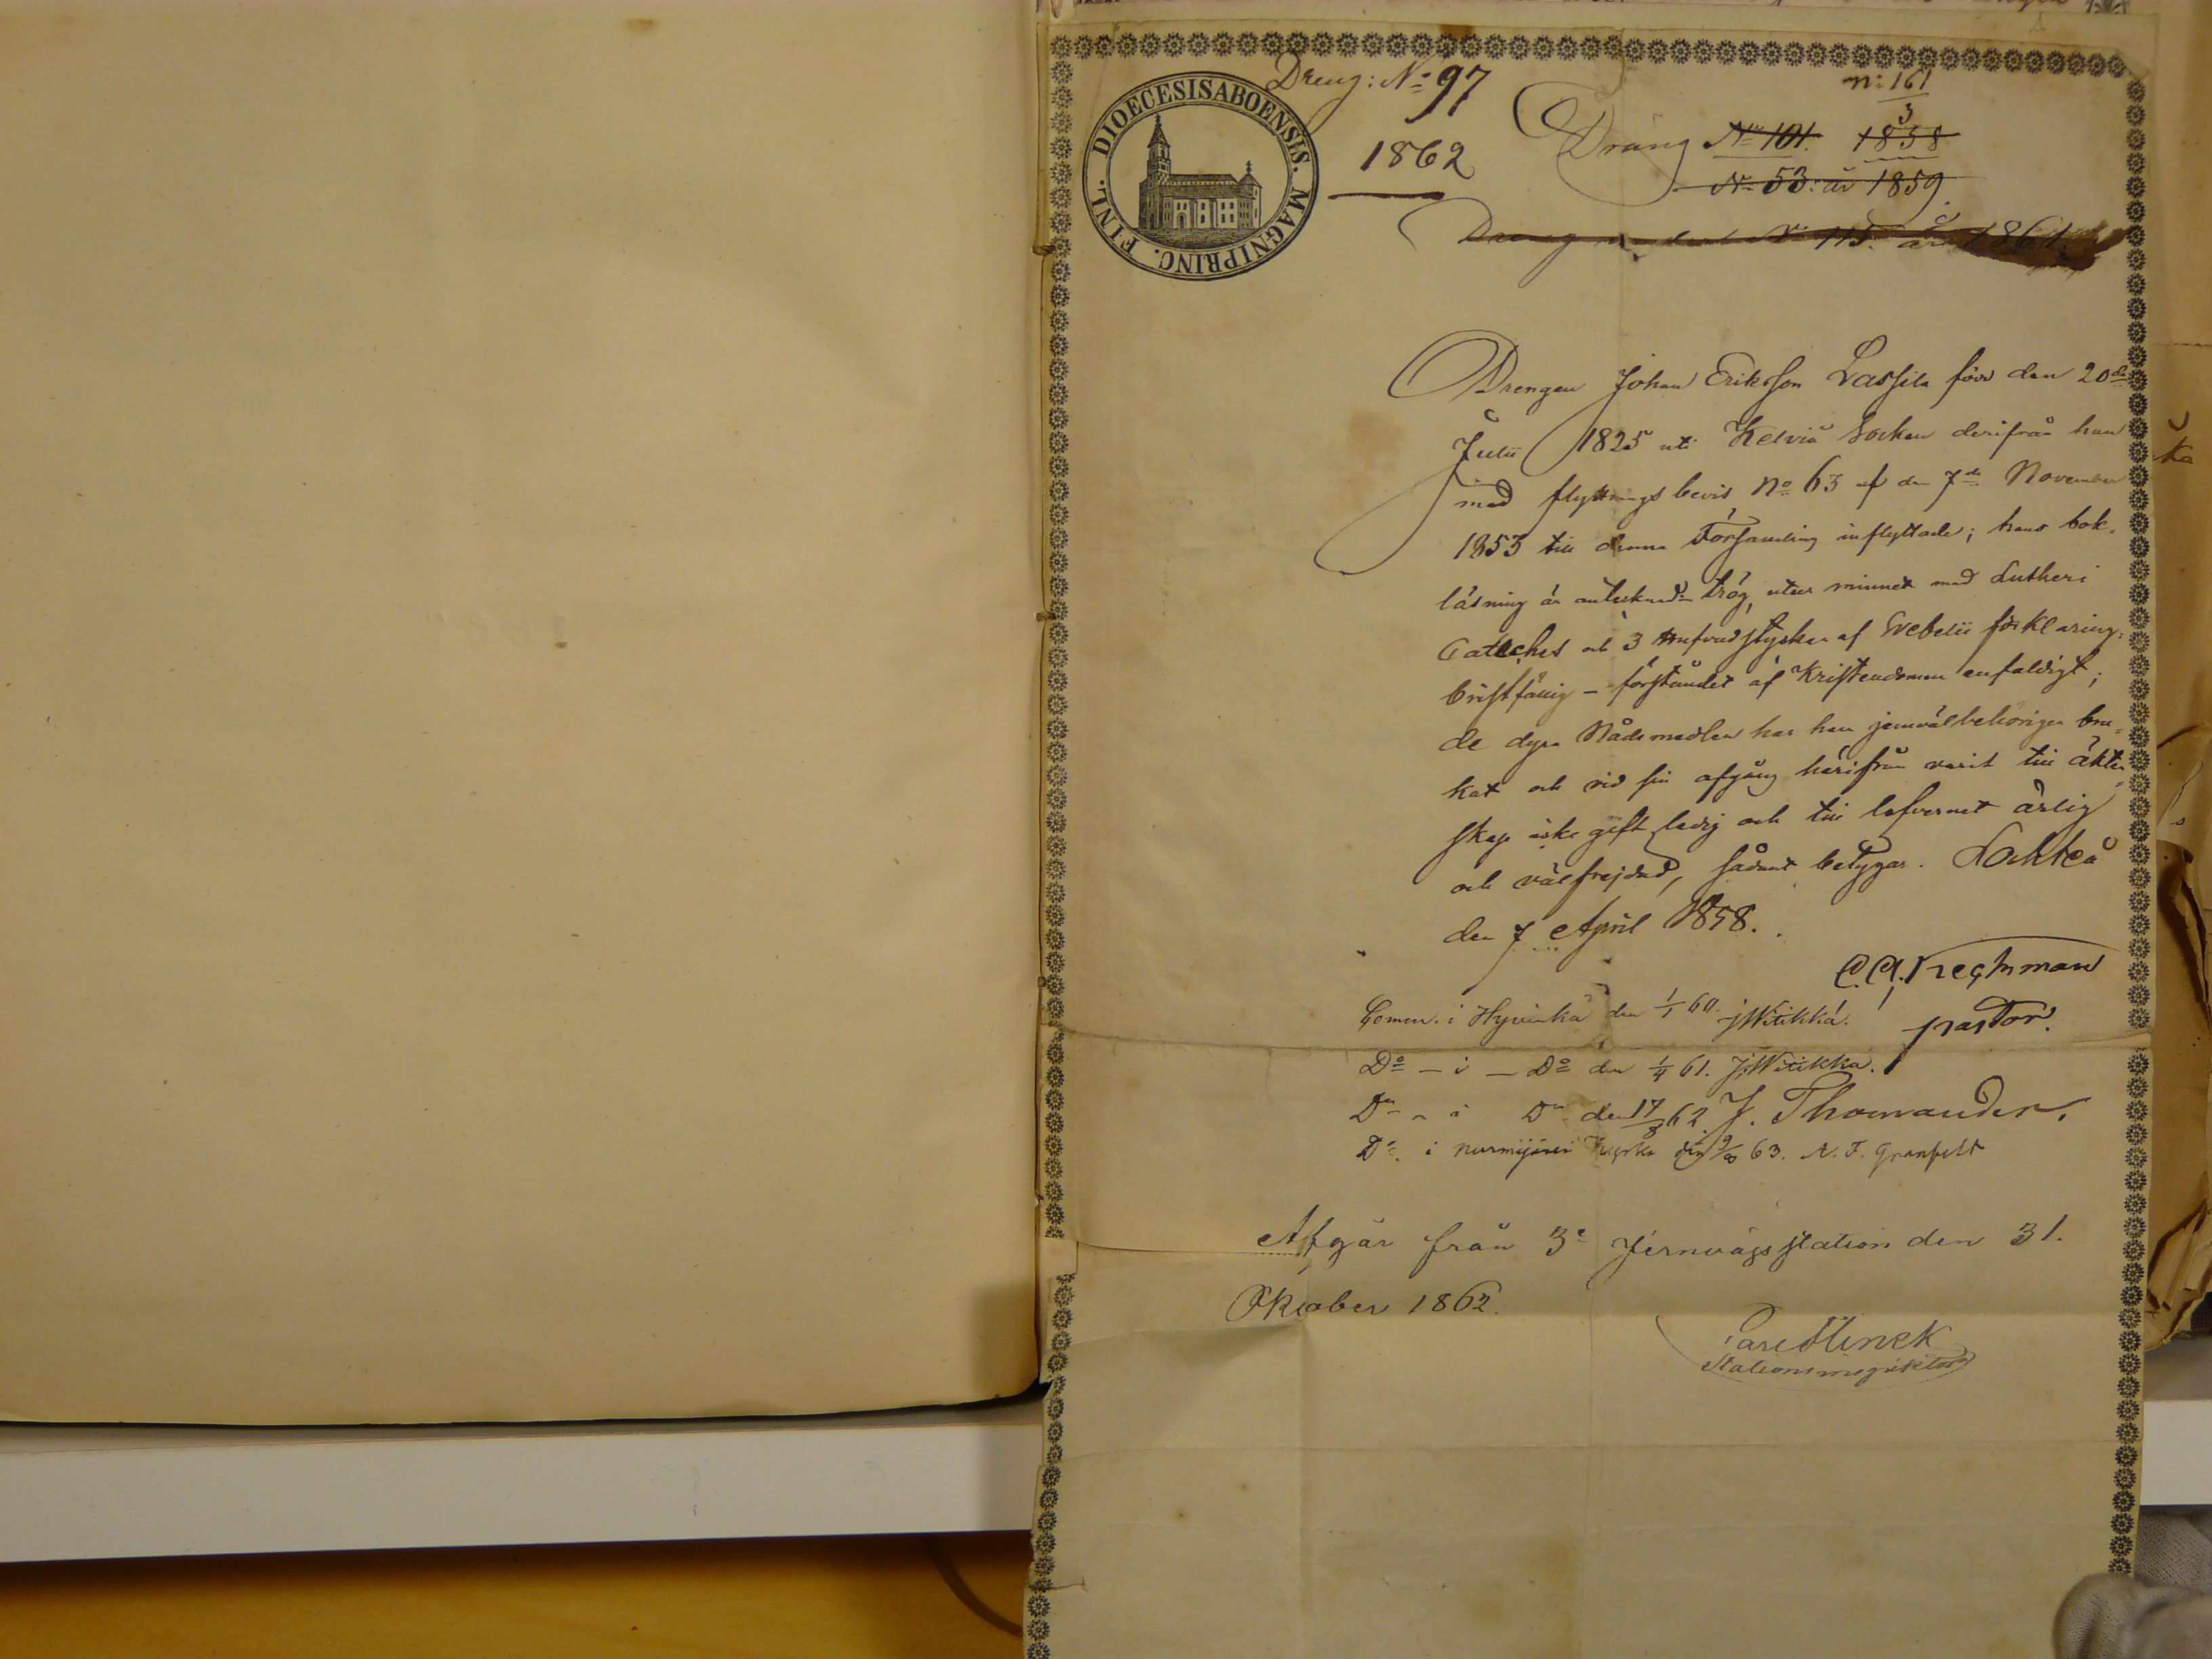 DIOECESIS ABOENSIS. MAGNI PRINC. FINL.
Dreng: No 97
1862
n: 161
3
Dräng No 101. 1858
No 53. år 1859.
Dreng No 115. år 1861.
Drengen Johan Eriksson Lassila född den 20de
Julii 1825 uti Kelviå Socken derifrån han
med flyttnings bevis No 63 af den 7de November
1853 till denna Församling inflyttade; hans bok-
läsning är antecknad trög, utur minnet med Lutheri
Cateches och 3 hufvudstycken af Svebelii förklaring:
bristfällig – förståndet af Kristendomen enfaldigt;
de dyra Nådemedlen har han jemväl behörigen bru-
kat och vid sin afgång härifrån varit till äkten-
skap icke gift, ledig och till lefvernet ärlig
och välfrejdad, sådant betygar. Lochteå
den 7 April 1858.
pastor.
Comm. i Hyvinkä den 1/1 60. J Witikka.
Do – i – Do den 1/4 61. J Witikka.
Do – i Do den 17/8 62. J. Thomander.
Do. i Nurmijärvi Kyrka den 9/8 63. A. F. Granfelt
Afgår från 3e Jernvägsstation den 31.
Oktober 1862.
Stationsinspektor